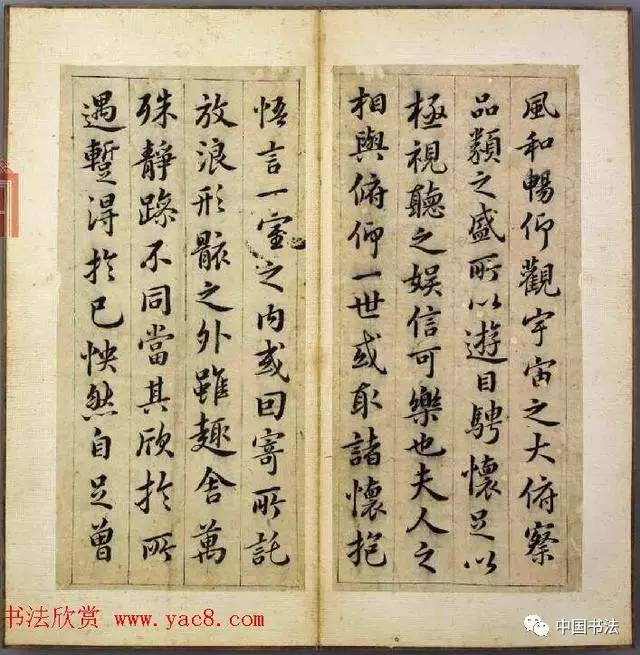 風和暢仰觀宇宙之大俯察
品類之盛所以遊目騁懷足以
極視聽之娛信可樂也夫人之
相與俯仰一世或取諸懷抱
悟言一室之内或因寄所託
放浪形骸之外雖趣舍萬
殊靜躁不同當其欣於所
遇蹔得於己怏然自足曾
书法欣赏 www.yac8.com
中国书法